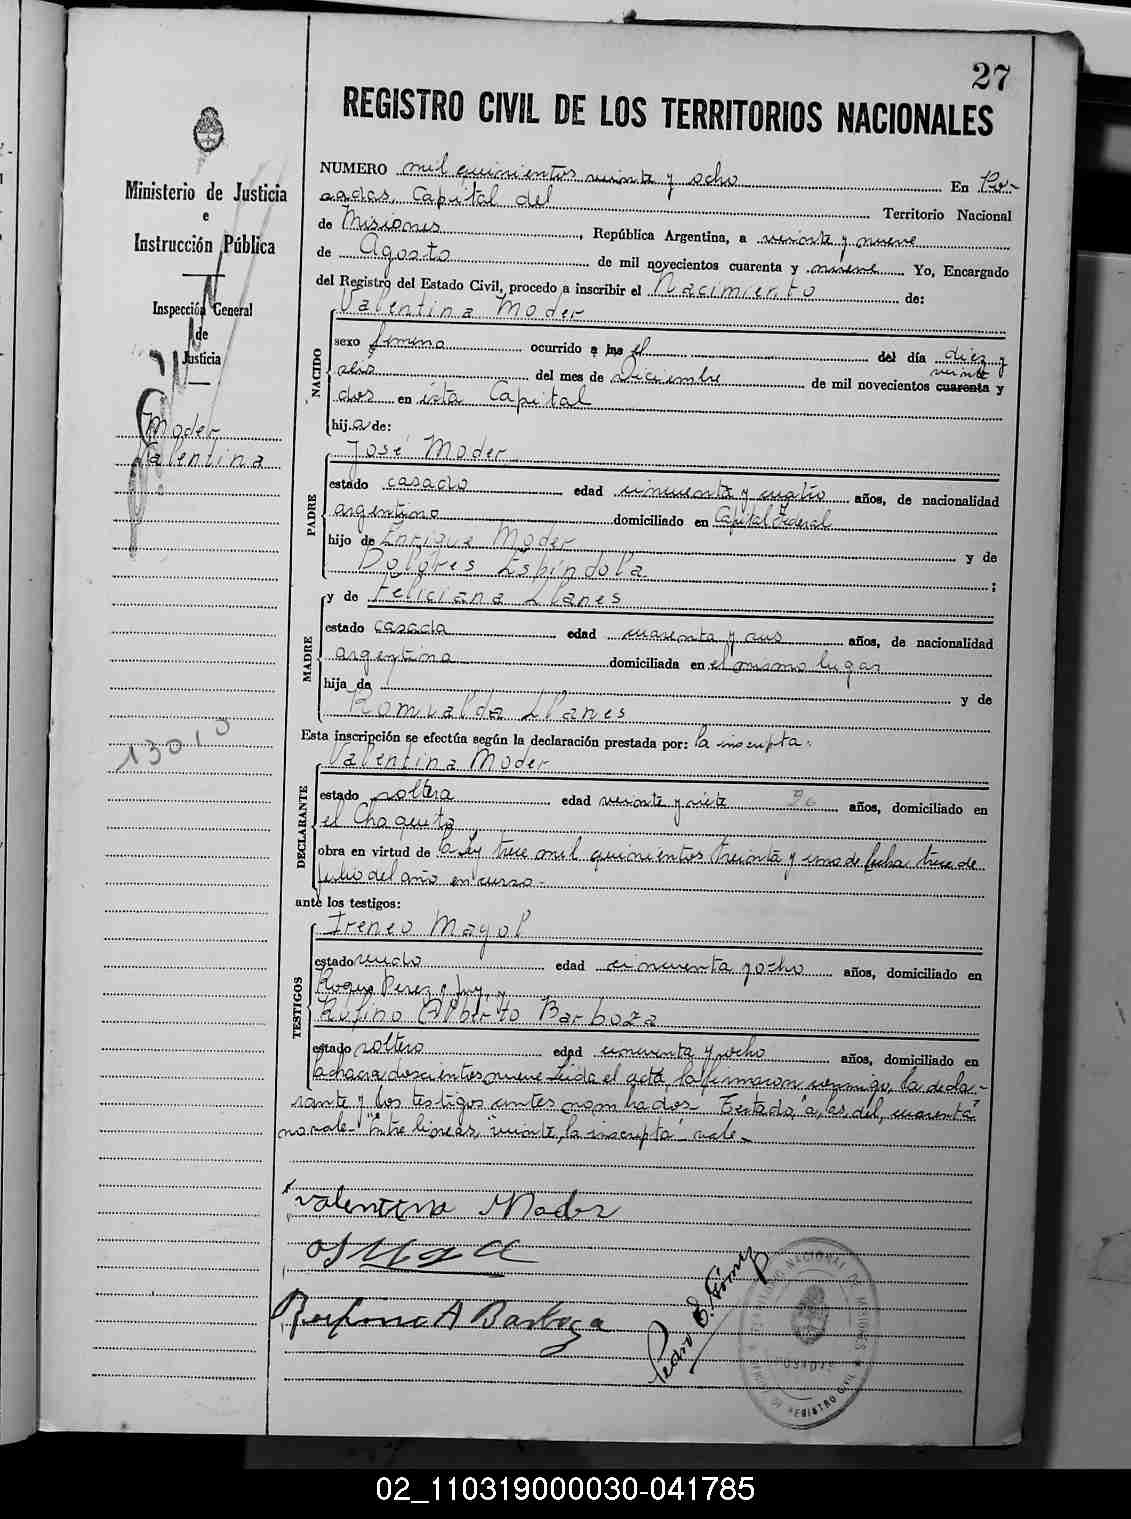 27
REGISTRO CIVIL DE LOS TERRITORIOS NACIONALES
Ministerio de Justicia
e
Instrucción Pública
Inspección General
de
Justicia
Moder
Valentina
13010
NUMERO mil quinientos veinte y ocho En Po-
sadas, Capital del Territorio Nacional
de Misiones, República Argentina, a veinte y nueve
de Agosto de mil novecientos cuarenta y nueve Yo, Encargado
del Registro del Estado Civil, procedo a inscribir el Nacimiento de:
Valentina Moder
NACIDO
sexo femeno ocurrido a las el del día diez y
seis del mes de Diciembre de mil novecientos cuarenta veinte y
dos en esta Capital
hija de:
José Moder
PADRE
estado casado edad cincuenta y cuatro años, de nacionalidad
argentino domiciliado en Capital Federal
hijo de Enrique Moder y de
Dolores Espíndola ;
y de Feliciana Llanes
MADRE
estado casada edad cuarenta y seis años, de nacionalidad
argentina domiciliada en el mismo lugar
hija de y de
Romualda Llanes
Esta inscripción se efectúa según la declaración prestada por: la inscripta:
Valentina Moder
DECLARANTE
estado soltera edad veinte y siete años, domiciliado en
el Chaquito
obra en virtud de la Ley trece mil quinientos treinta y uno de fecha trece de
Julio del año en curso-
ante los testigos:
Ireneo Mayol
TESTIGOS
estado viudo edad cincuenta y ocho años, domiciliado en
Roque Perez y Juy. y
Rufino Alberto Barboza
estado soltero edad cincuenta y ocho años, domiciliado en
la chacra doscientos nueve Leida el acta, la firmaron conmigo, la decla-
rante y los testigos antes nombados- Testado "a, las, del, cuarenta"
no vale- "Entre lineas, "veinte, la inscripta"- vale-
Valentina Moder
Rufino A Barboza
Pedro E. Gómez
TERRITORIO NACIONAL DE MISIONES
POSADAS
REGISTRO CIVIL
02_110319000030-041785